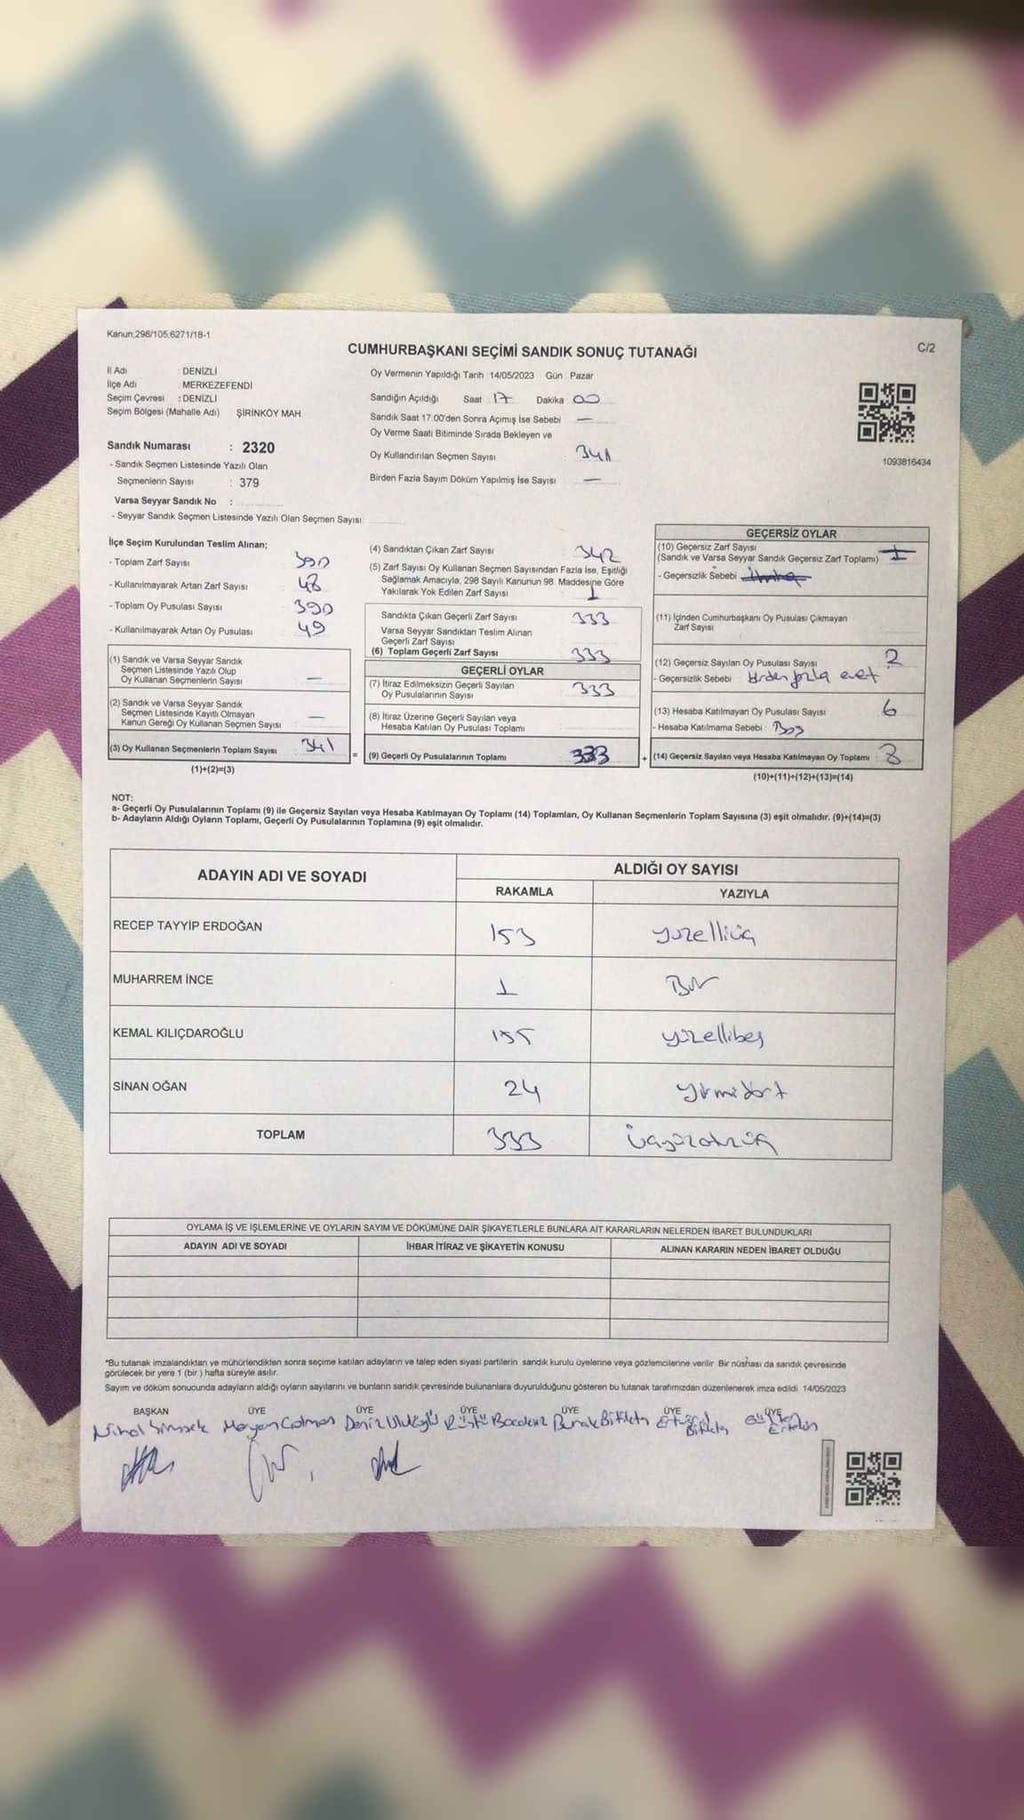 Kanun:298/105,6271/18-1
CUMHURBAŞKANI SEÇİMİ SANDIK SONUÇ TUTANAĞI
C/2
İl Adı DENİZLİ
İlçe Adı MERKEZEFENDİ
Seçim Çevresi : DENİZLİ
Seçim Bölgesi (Mahalle Adı) ŞİRİNKÖY MAH.
Sandık Numarası : 2320
- Sandık Seçmen Listesinde Yazılı Olan
Seçmenlerin Sayısı : 379
Varsa Seyyar Sandık No :
- Seyyar Sandık Seçmen Listesinde Yazılı Olan Seçmen Sayısı
Oy Vermenin Yapıldığı Tarih 14/05/2023 Gün Pazar
Sandığın Açıldığı Saat 17 Dakika 00
Sandık Saat 17.00'den Sonra Açımış İse Sebebi —
Oy Verme Saati Bitiminde Sırada Bekleyen ve
Oy Kullandırılan Seçmen Sayısı 341
Birden Fazla Sayım Döküm Yapılmış İse Sayısı —
1093816434
İlçe Seçim Kurulundan Teslim Alınan;
- Toplam Zarf Sayısı 390
- Kullanılmayarak Artan Zarf Sayısı 48
- Toplam Oy Pusulası Sayısı 390
- Kullanılmayarak Artan Oy Pusulası 49
(1) Sandık ve Varsa Seyyar Sandık
Seçmen Listesinde Yazılı Olup
Oy Kullanan Seçmenlerin Sayısı —
(2) Sandık ve Varsa Seyyar Sandık
Seçmen Listesinde Kayıtlı Olmayan
Kanun Gereği Oy Kullanan Seçmen Sayısı —
(3) Oy Kullanan Seçmenlerin Toplam Sayısı 341
(1)+(2)=(3)
(4) Sandıktan Çıkan Zarf Sayısı 342
(5) Zarf Sayısı Oy Kullanan Seçmen Sayısından Fazla İse, Eşitliği
Sağlamak Amacıyla, 298 Sayılı Kanunun 98. Maddesine Göre
Yakılarak Yok Edilen Zarf Sayısı 1
Sandıkta Çıkan Geçerli Zarf Sayısı 333
Varsa Seyyar Sandıktan Teslim Alınan
Geçerli Zarf Sayısı
(6) Toplam Geçerli Zarf Sayısı 333
GEÇERLİ OYLAR
(7) İtiraz Edilmeksizin Geçerli Sayılan
Oy Pusulalarının Sayısı 333
(8) İtiraz Üzerine Geçerli Sayılan veya
Hesaba Katılan Oy Pusulası Toplamı
= (9) Geçerli Oy Pusulalarının Toplamı 333
GEÇERSİZ OYLAR
(10) Geçersiz Zarf Sayısı
(Sandık ve Varsa Seyyar Sandık Geçersiz Zarf Toplamı) 1
- Geçersizlik Sebebi
(11) İçinden Cumhurbaşkanı Oy Pusulası Çıkmayan
Zarf Sayısı
(12) Geçersiz Sayılan Oy Pusulası Sayısı 2
- Geçersizlik Sebebi Birden fazla evet
(13) Hesaba Katılmayan Oy Pusulası Sayısı 6
- Hesaba Katılmama Sebebi : Boş
+ (14) Geçersiz Sayılan veya Hesaba Katılmayan Oy Toplamı 8
(10)+(11)+(12)+(13)=(14)
NOT:
a- Geçerli Oy Pusulalarının Toplamı (9) ile Geçersiz Sayılan veya Hesaba Katılmayan Oy Toplamı (14) Toplamları, Oy Kullanan Seçmenlerin Toplam Sayısına (3) eşit olmalıdır. (9)+(14)=(3)
b- Adayların Aldığı Oyların Toplamı, Geçerli Oy Pusulalarının Toplamına (9) eşit olmalıdır.
ADAYIN ADI VE SOYADI ALDIĞI OY SAYISI
RAKAMLA YAZIYLA
RECEP TAYYİP ERDOĞAN 153 yüzelliüç
MUHARREM İNCE 1 Bir
KEMAL KILIÇDAROĞLU 155 yüzellibeş
SİNAN OĞAN 24 yirmidört
TOPLAM 333 üçyüzotuzüç
OYLAMA İŞ VE İŞLEMLERİNE VE OYLARIN SAYIM VE DÖKÜMÜNE DAİR ŞİKAYETLERLE BUNLARA AİT KARARLARIN NELERDEN İBARET BULUNDUKLARI
ADAYIN ADI VE SOYADI İHBAR İTİRAZ VE ŞİKAYETİN KONUSU ALINAN KARARIN NEDEN İBARET OLDUĞU
*Bu tutanak imzalandıktan ve mühürlendikten sonra seçime katılan adayların ve talep eden siyasi partilerin sandık kurulu üyelerine veya gözlemcilerine verilir. Bir nüshası da sandık çevresinde
görülecek bir yere 1 (bir) hafta süreyle asılır.
Sayım ve döküm sonucunda adayların aldığı oyların sayılarını ve bunların sandık çevresinde bulunanlara duyurulduğunu gösteren bu tutanak tarafımızdan düzenlenerek imza edildi. 14/05/2023
BAŞKAN ÜYE ÜYE ÜYE ÜYE ÜYE ÜYE
Nihal Şimşek